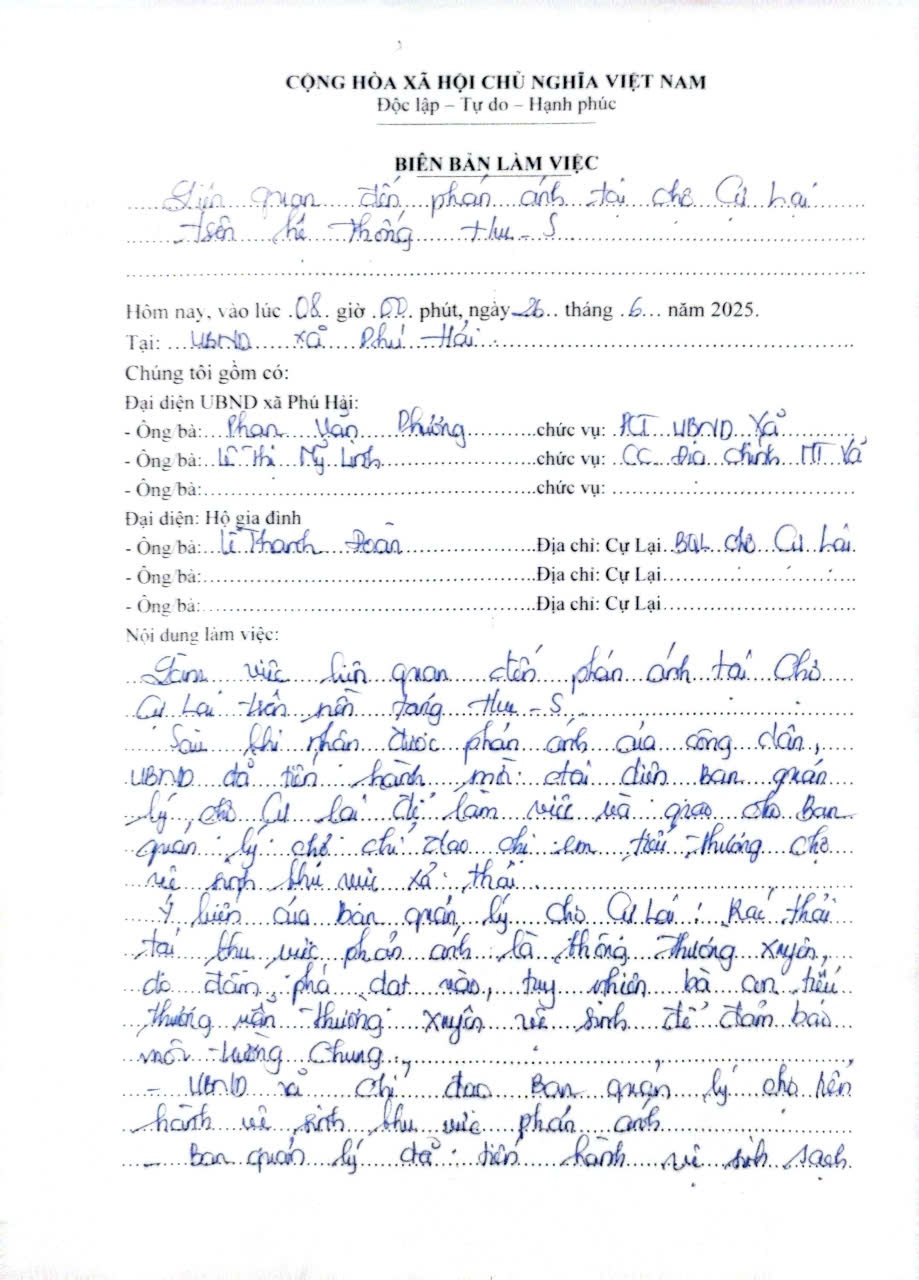 CỘNG HÒA XÃ HỘI CHỦ NGHĨA VIỆT NAM
Độc lập – Tự do – Hạnh phúc
BIÊN BẢN LÀM VIỆC
Liên quan đến phản ánh tại chợ Cự Lại
trên hệ thống Hue - S
Hôm nay, vào lúc 08 giờ 00 phút, ngày 26 tháng 6 năm 2025.
Tại: UBND xã Phú Hải
Chúng tôi gồm có:
Đại diện UBND xã Phú Hải:
- Ông/bà: Phan Văn Phương chức vụ: PCT UBND xã
- Ông/bà: Lê Thị Mỹ Linh chức vụ: CC Địa chính MT xã
- Ông/bà: chức vụ:
Đại diện: Hộ gia đình
- Ông/bà: Lê Thanh Đoàn Địa chỉ: Cự Lại BQL chợ Cự Lại
- Ông/bà: Địa chỉ: Cự Lại
- Ông/bà: Địa chỉ: Cự Lại
Nội dung làm việc:
Làm việc liên quan đến phản ánh tại Chợ
Cự Lại trên nền tảng Hue - S,
Sau khi nhận được phản ánh của công dân,
UBND đã tiến hành mời đại diện Ban quản
lý chợ Cự Lại để làm việc và giao cho Ban
quản lý chợ chỉ đạo chị em tiểu thương chợ
vệ sinh khu vực xả thải.
Ý kiến của Ban quản lý chợ Cự Lại: Rác thải
tại khu vực phản ánh là thông thường xuyên,
do đầm phá dạt vào, tuy nhiên bà con tiểu
thương vẫn thường xuyên vệ sinh để đảm bảo
môi trường chung.
- UBND xã chỉ đạo Ban quản lý chợ tiến
hành vệ sinh khu vực phản ánh
- Ban quản lý đã tiến hành vệ sinh sạch